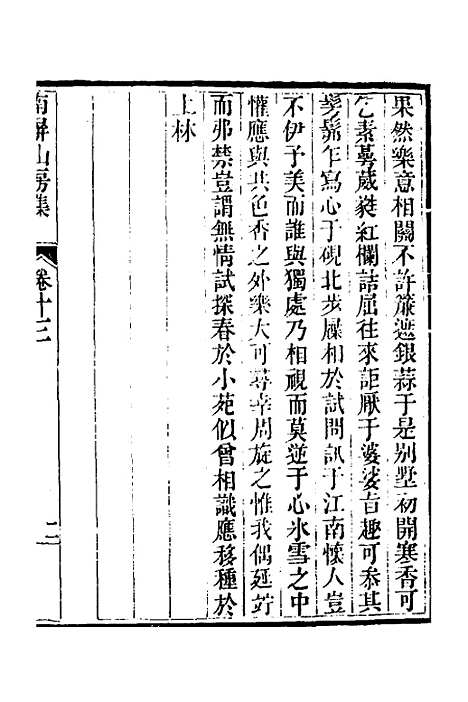 果然樂意相關不許簾遮銀蒜于是别墅初開寒香可
乞素萼葳蕤紅欄詰屈往來詎厭于婆娑旨趣可叅其
髣髴乍寫心于硯北步屧相於試問訊于江南懷人豈
不伊予美而誰與獨處乃相視而莫逆于心氷雪之中
惟應與共色香之外樂大可尋幸周旋之惟我偶延竚
而弗禁豈謂無情試探春於小苑似曾相識應移種於
上林
南屏山房集
卷十三
二